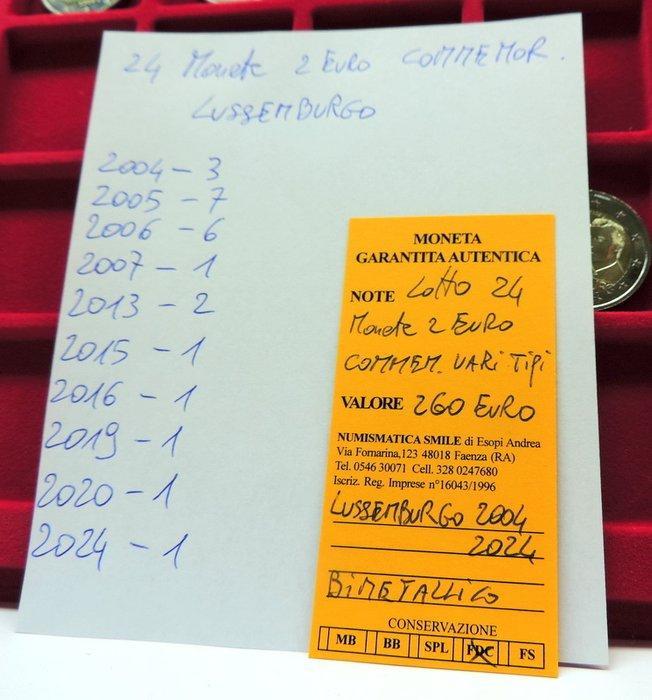 24 Monete 2 Euro COMMEMOR.
LUSSEMBURGO
2004 - 3
2005 - 7
2006 - 6
2007 - 1
2013 - 2
2015 - 1
2016 - 1
2019 - 1
2020 - 1
2024 - 1
MONETA
GARANTITA AUTENTICA
NOTE Lotto 24
Monete 2 EURO
COMMEM. VARI TIPI
VALORE 260 EURO
NUMISMATICA SMILE di Esopi Andrea
Via Fornarina,123 48018 Faenza (RA)
Tel. 0546 30071 Cell. 328 0247680
Iscriz. Reg. Imprese n°16043/1996
LUSSEMBURGO 2004
2024
BIMETALLICO
CONSERVAZIONE
MB BB SPL FDC FS